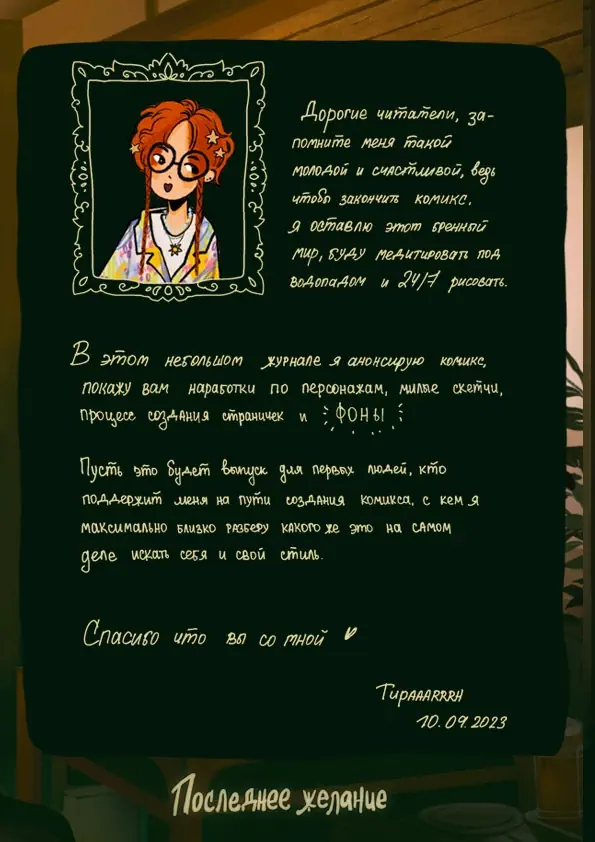 Дорогие читатели, за-
помните меня такой
молодой и счастливой, ведь
чтобы закончить комикс,
я оставлю этот бренный
мир, буду медитировать под
водопадом и 24/7 рисовать.
В этом небольшом журнале я анонсирую комикс,
покажу вам наработки по персонажам, милые скетчи,
процесс создания страничек и ФОНЫ
Пусть это будет выпуск для первых людей, кто
поддержит меня на пути создания комикса, с кем я
максимально близко разберу какого же это на самом
деле искать себя и свой стиль.
Спасибо что вы со мной
ТираAARRRH
10.09.2023
Последнее желание